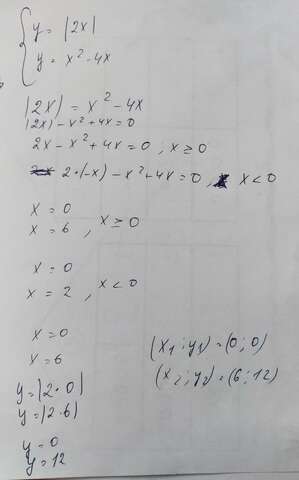 y = |2x|
y = x² - 4x
|2x| = x² - 4x
|2x| - x² + 4x = 0
2x - x² + 4x = 0 , x ≥ 0
2·(-x) - x² + 4x = 0 , x < 0
x = 0
x = 6 , x ≥ 0
x = 0
x = 2 , x < 0
x = 0
x = 6
y = |2·0|
y = |2·6|
y = 0
y = 12
(x₁ ; y₁) = (0 ; 0)
(x₂ ; y₂) = (6 ; 12)